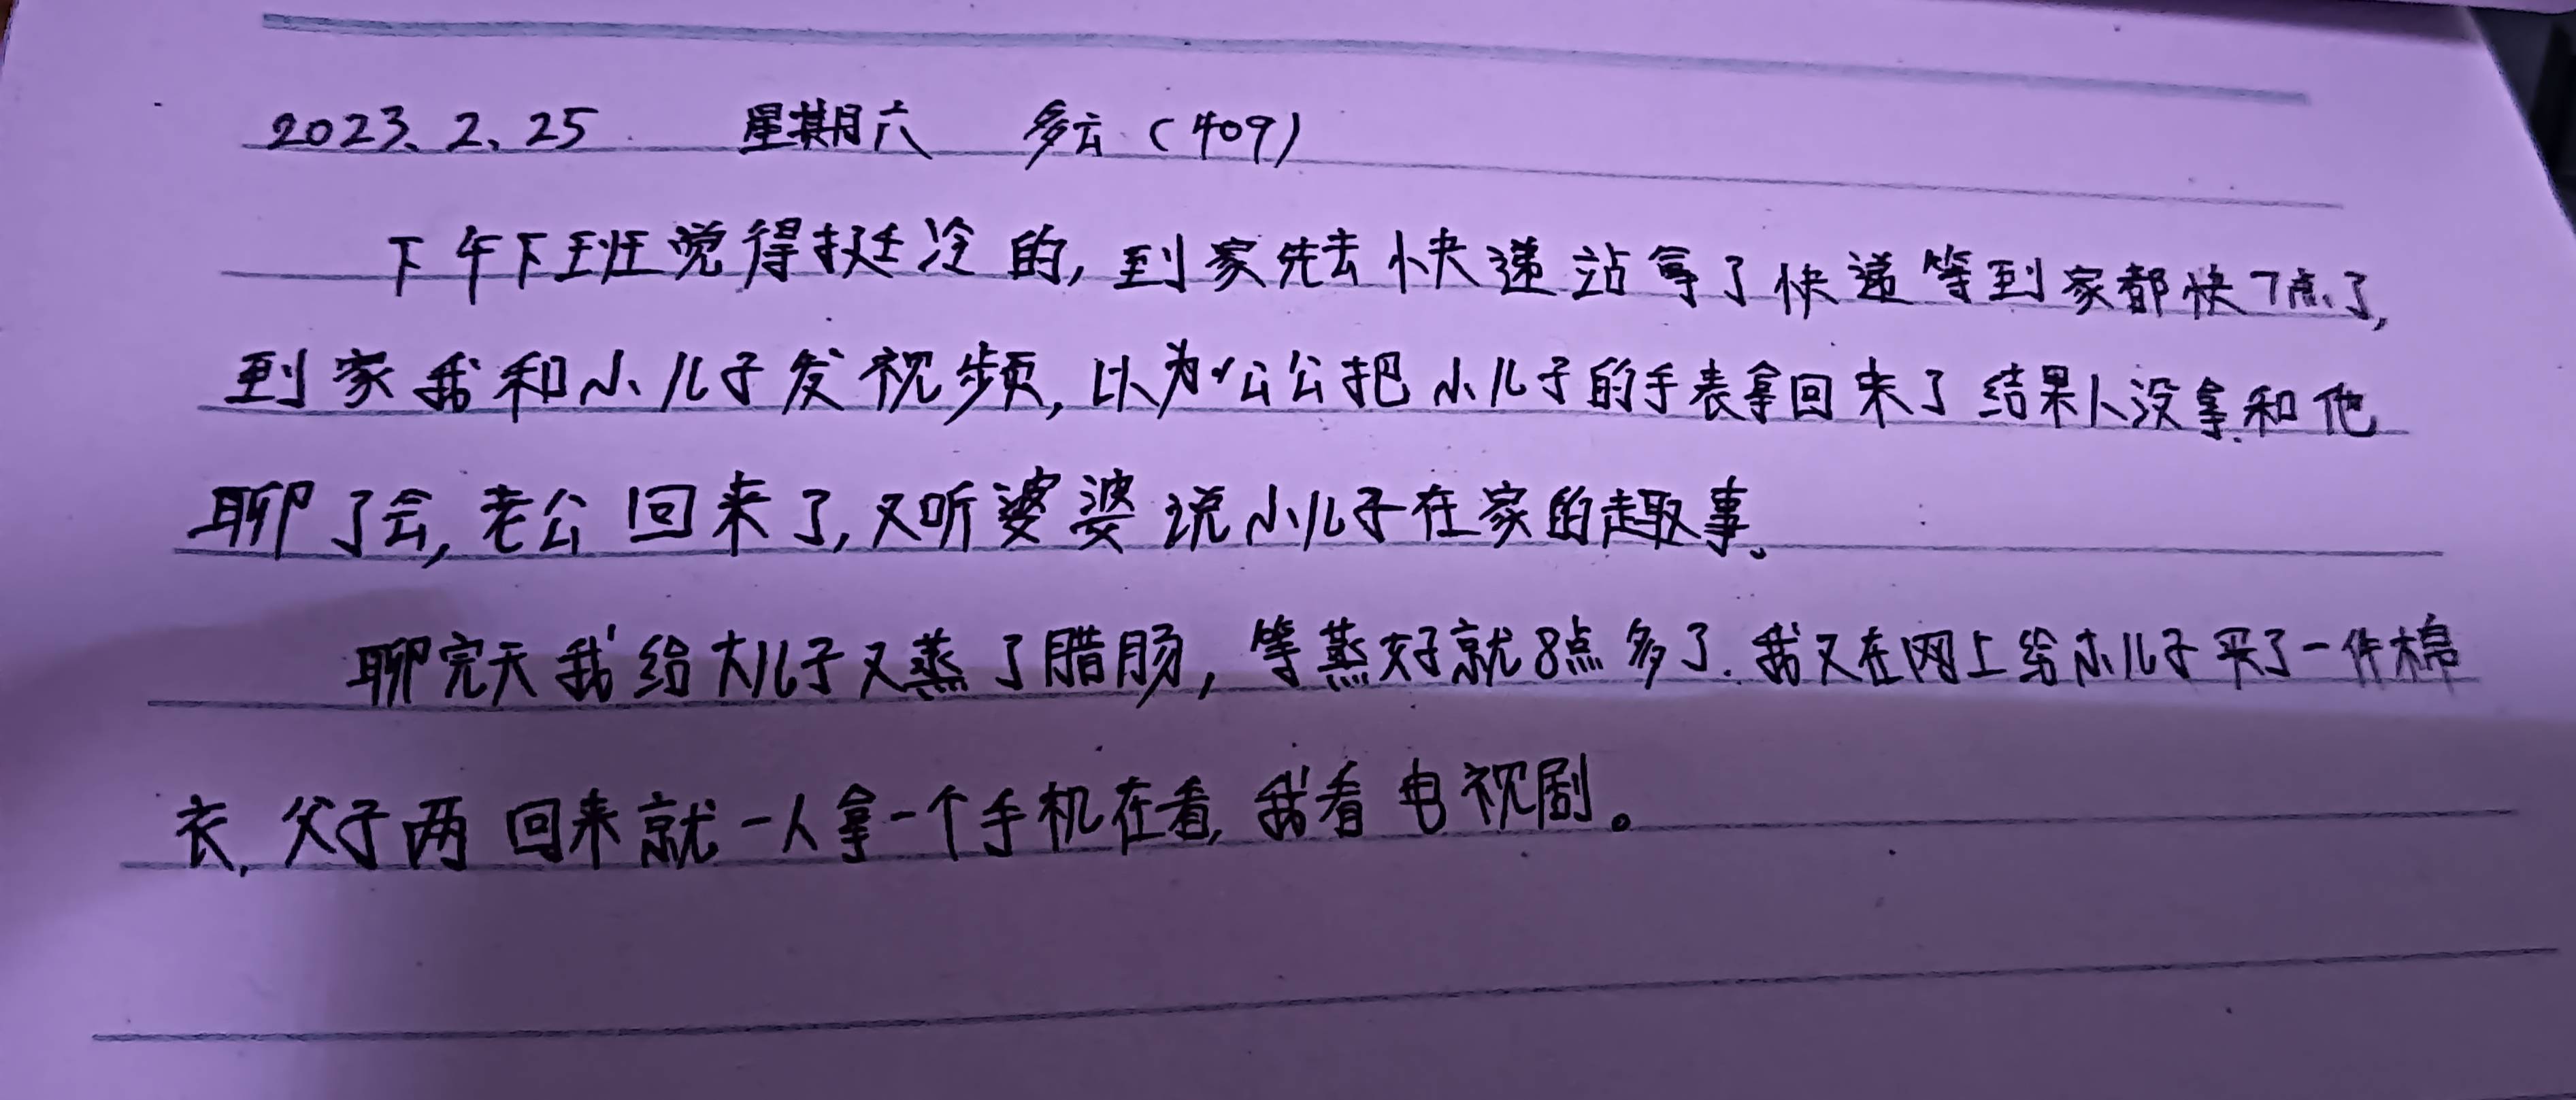 2023、2、25 星期六 多云（409）
下午下班觉得挺冷的,到家先去快递站拿了快递等到家都快7点了,
到家我和小儿子发视频,以为公公把小儿子的手表拿回来了结果人没拿.和他
聊了会,老公回来了,又听婆婆说小儿子在家的趣事。
聊完天我给大儿子又蒸了腊肠,等蒸好就8点多了.我又在网上给小儿子买了一件棉
衣,父子两回来就一人拿一个手机在看,我看电视剧。